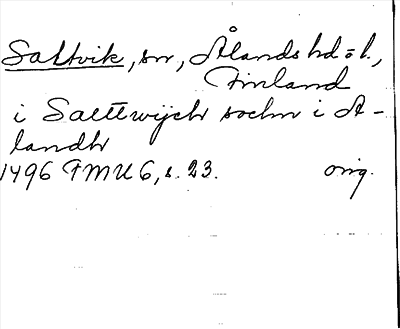 Saltvik, sn, Ålands hd o l.,
Finland
i Salttwijch sochn i A-
landh
1496 FMU 6, s. 23. orig.